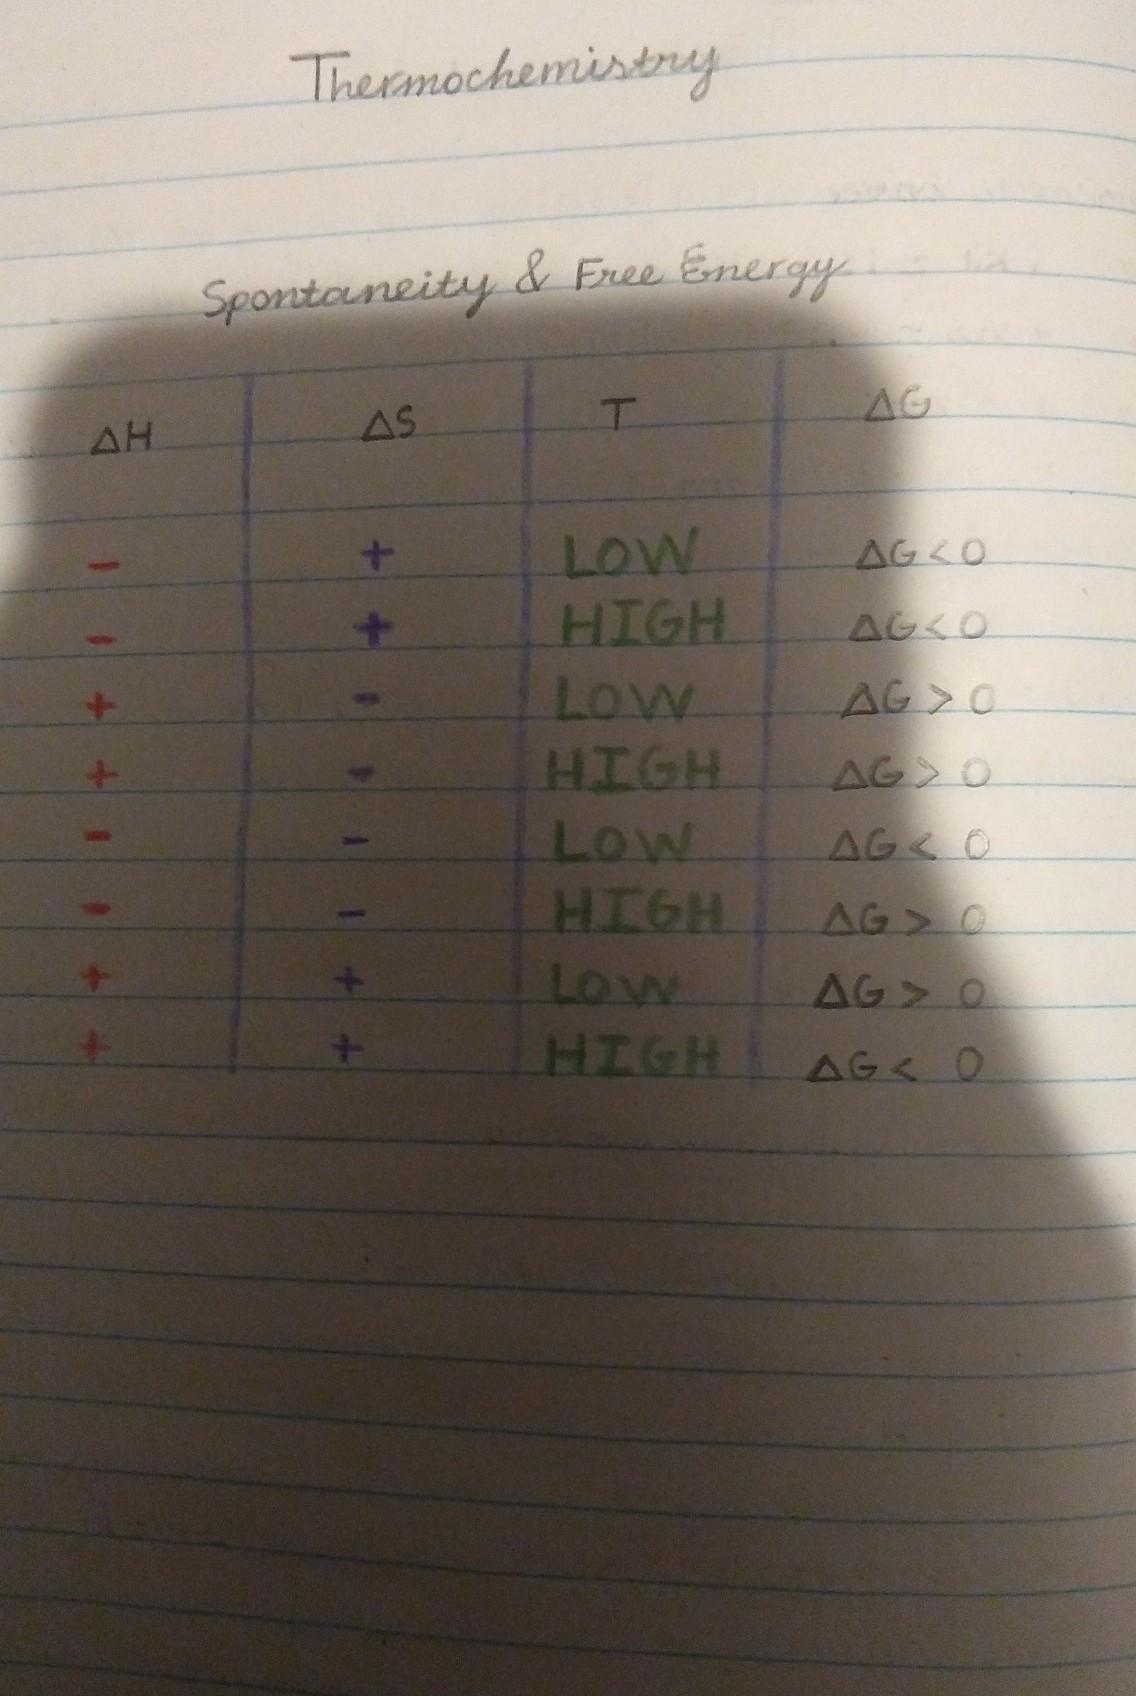 Thermochemistry
Spontaneity & Free Energy
ΔH ΔS T ΔG
- + LOW ΔG < 0
- + HIGH ΔG < 0
+ - LOW ΔG > 0
+ - HIGH ΔG > 0
- - LOW ΔG < 0
- - HIGH ΔG > 0
+ + LOW ΔG > 0
+ + HIGH ΔG < 0